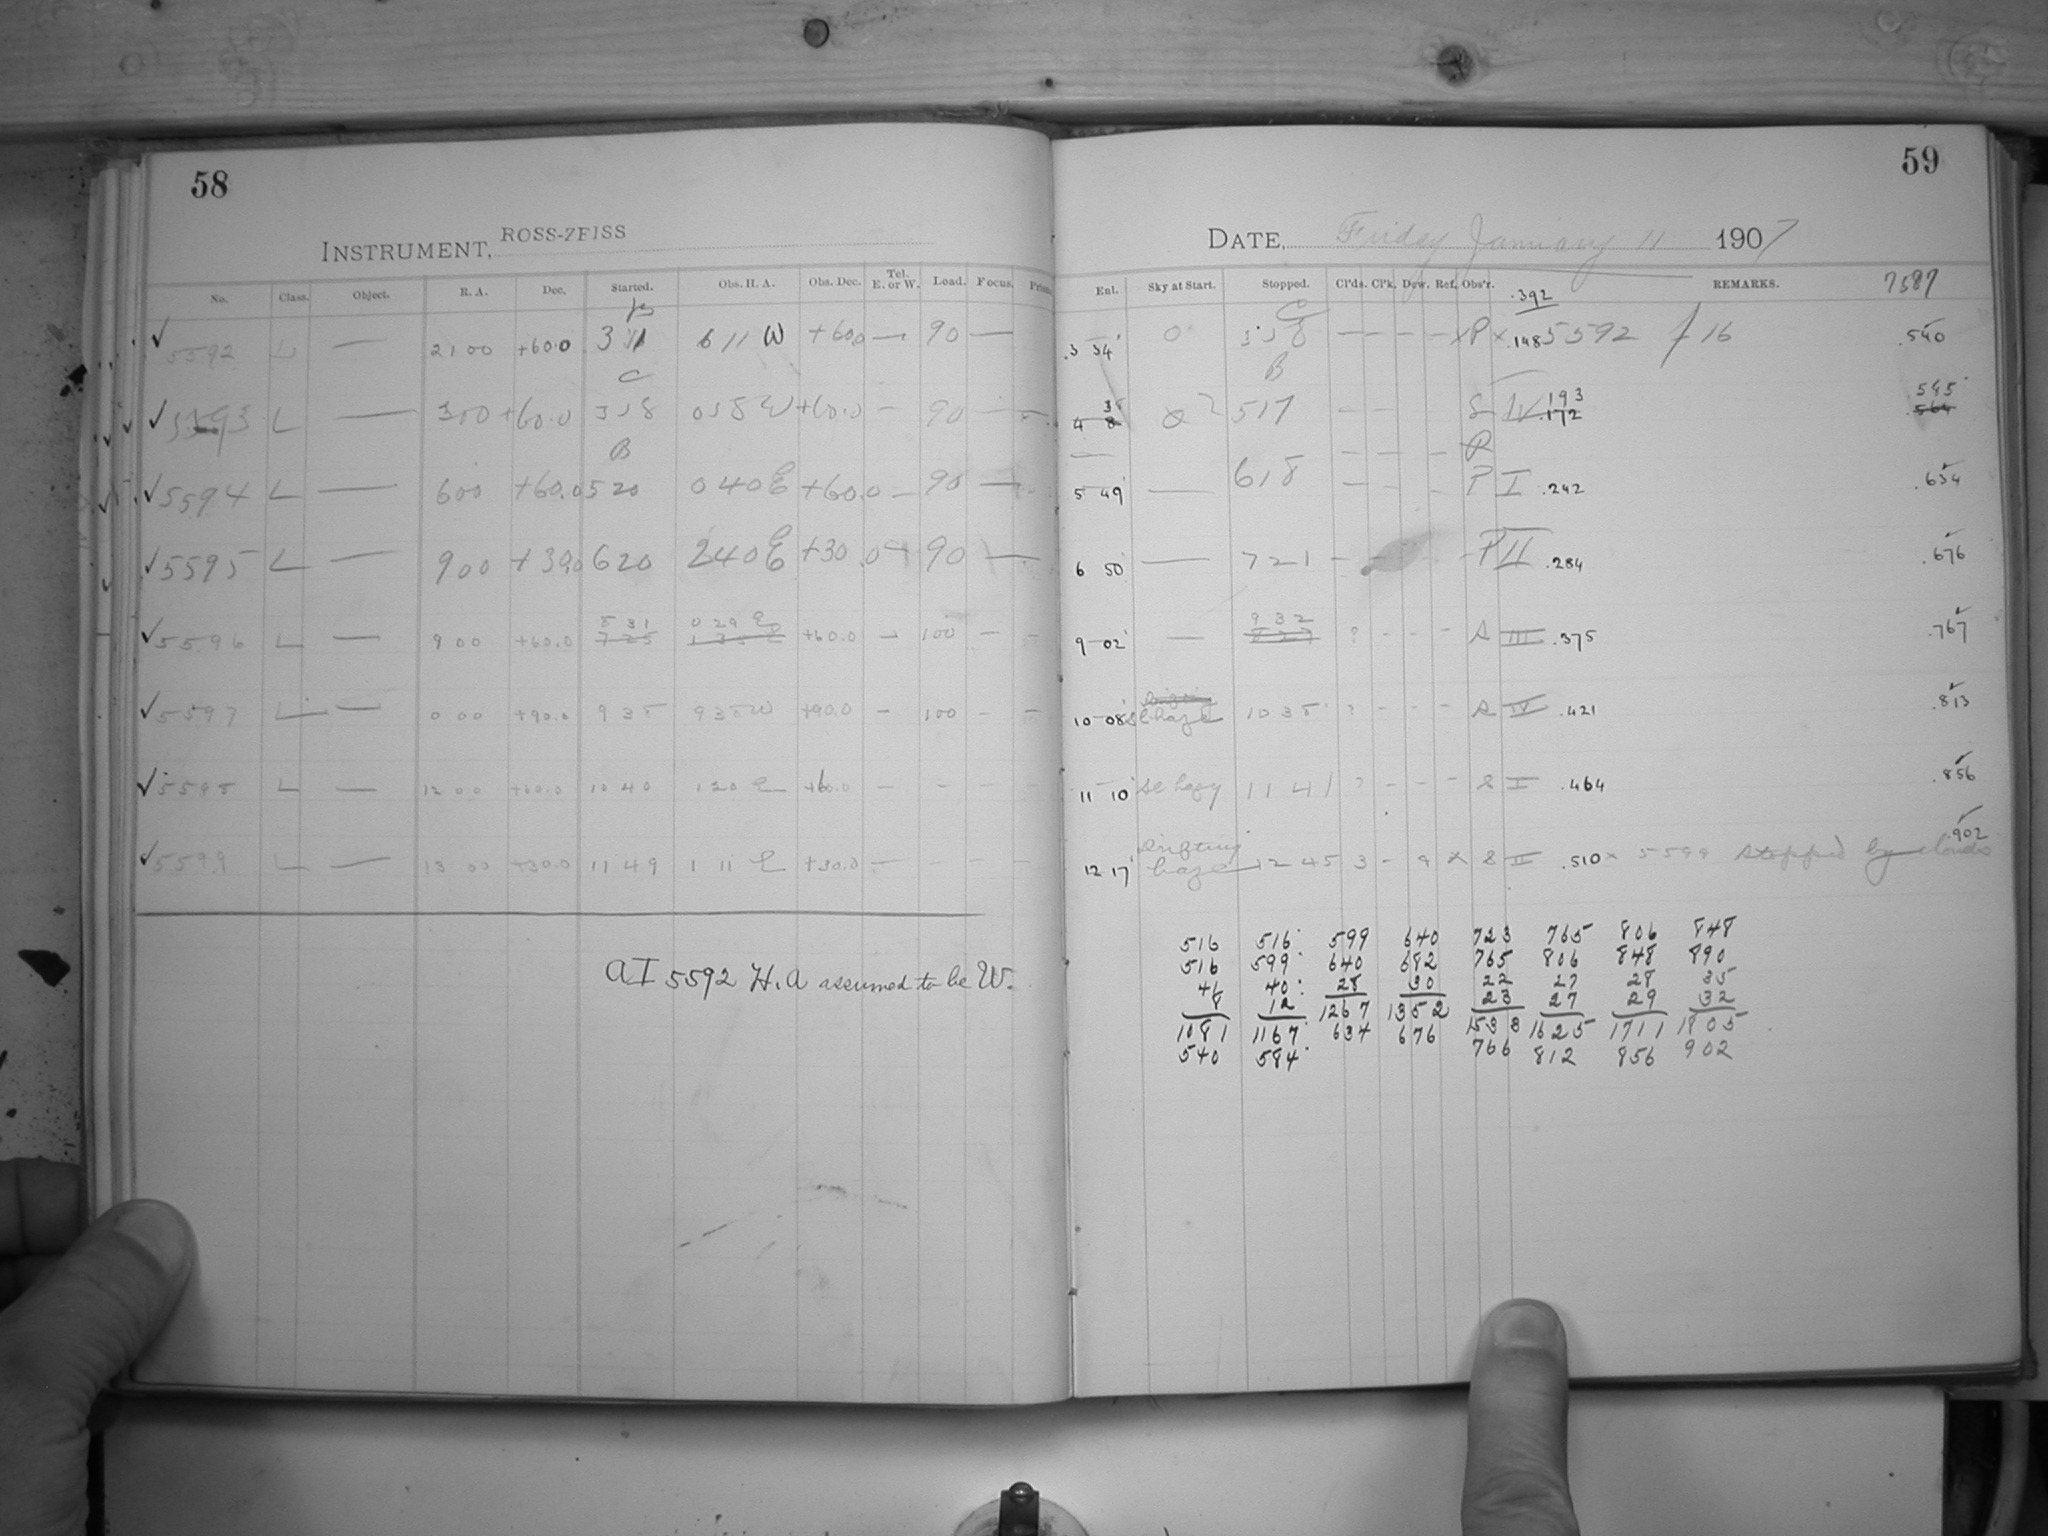 58
INSTRUMENT, ROSS-ZEISS
No. Class. Object. R. A. Dec. Started. Obs. H. A. Obs. Dec. Tel. E. or W. Load. Focus.
✓ 5592 L — 21 00 +60.0 3 11 6 11 W +60.0 — 90 —
C
✓ L — 300 +60.0 358 058 W +60.0 — 90 —
B
✓ 5594 L — 600 +60.0 520 040 E +60.0 — 90 —
✓ 5595 L — 900 +30.0 620 240 E +30.0 — 90 —
8 31 0 29 E
✓ 5596 L — 9 00 +60.0 7 25 1 35 E +60.0 — 100 — —
✓ 5597 L — 0 00 +90.0 9 35 9 35 W +90.0 — 100 — —
✓ 5598 L — 12 00 +60.0 10 40 1 20 E +60.0 — — —
✓ 5599 L — 13 00 +30.0 11 49 1 11 E +30.0 — — —
AI 5592 H.A assumed to be W.
59
DATE, Friday January 11 1907
Ent. Sky at Start. Stopped. Cl'ds. Cl'k. Dew. Ref. Obs'r. REMARKS. 7587
.392
C
3 34 0 358 — — — — × P × .148 5592 f 16 .540
B
38 193 585
4 8 517 — — S IV .172 .564
R
5 49 — 618 — — — P I .242 .634
6 50 — 721 — — — P II .284 .676
9 32
9 02 — 8 27 ? - - - S III .375 .767
10 08 haze 10 35 ? - - - S IV .421 .813
11 10 sl hazy 11 41 ? - - - S I .464 .856
drifting .902
12 17 haze 12 45 3 - 9 × S II .510 × 5599 stopped by clouds
516 516 599 640 723 765 806 848
516 599 640 682 765 806 848 890
41 40 28 30 22 27 28 35
8 12 23 27 29 32
1081 1167 1267 1352 1533 1625 1711 1805
540 584 634 676 766 812 856 902